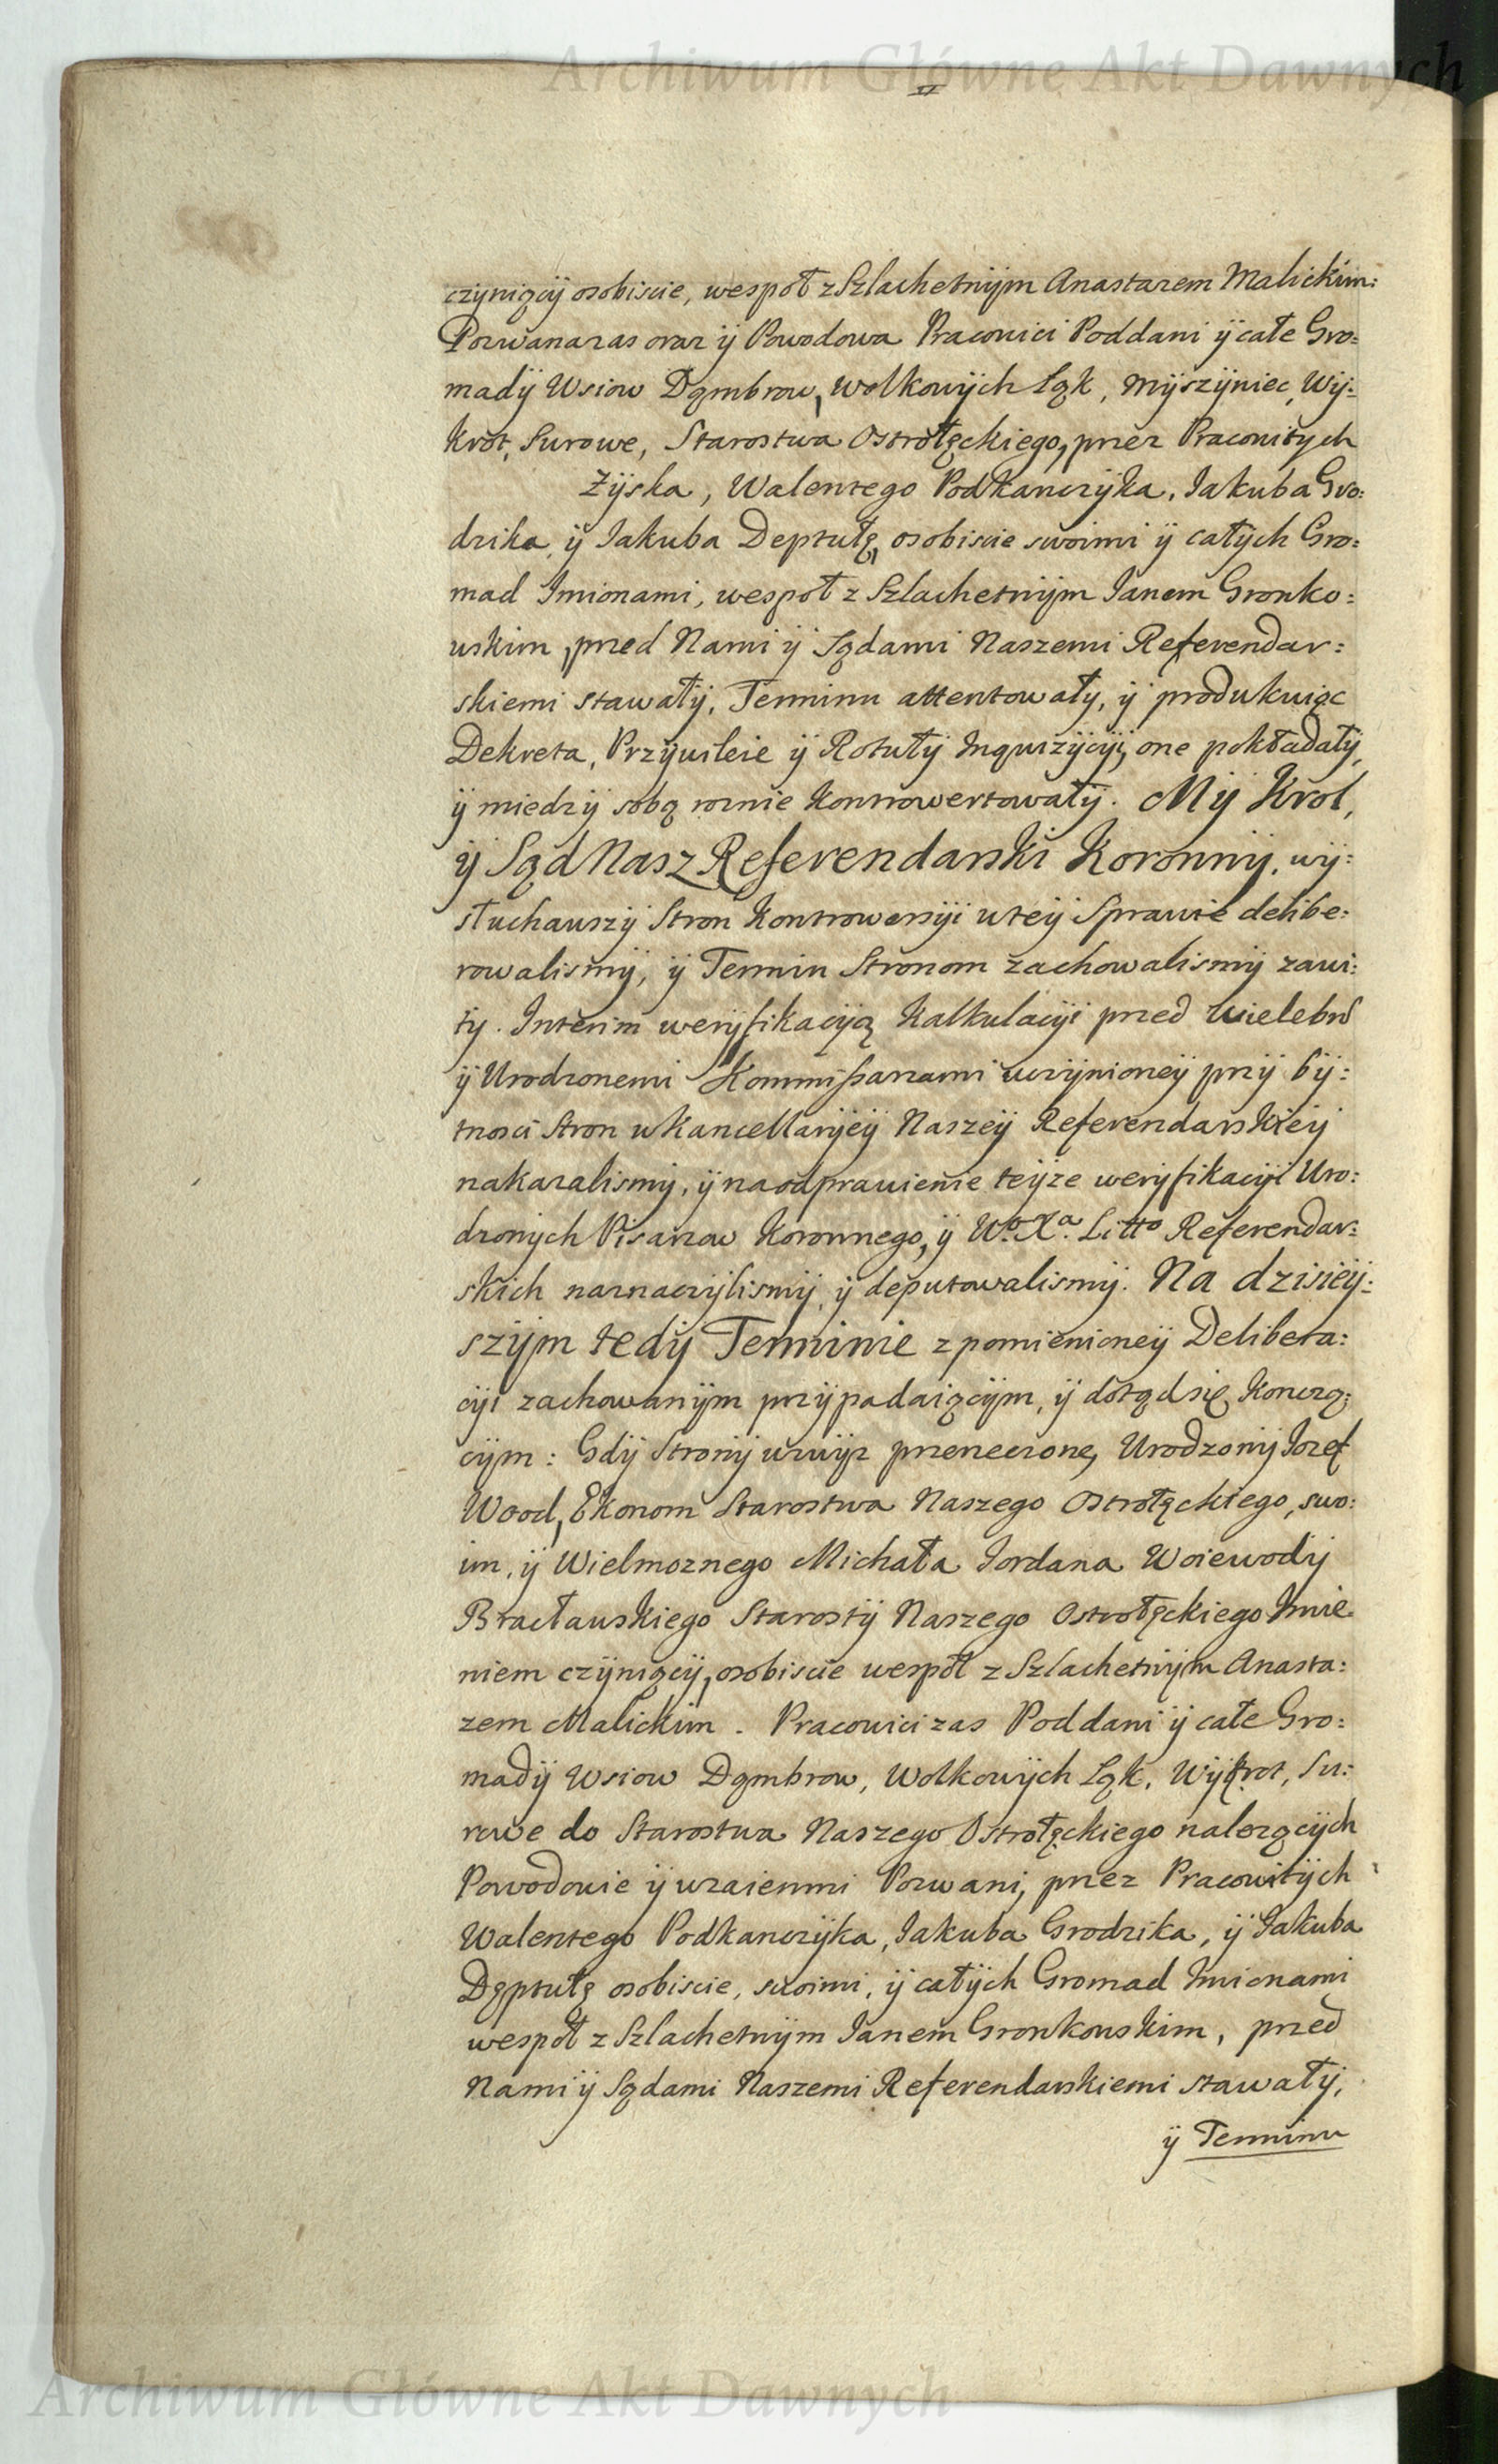 Archiwum Główne Akt Dawnych
czÿniącÿ osobiscie, wespoł z Szlachetnÿm Anastazem Malickim:
Pozwana zas oraz ÿ Powodowa Pracowici Poddani ÿ całe Gro:
madÿ Wsiow Dąmbrow, Wolkowÿch Łąk, Mÿszÿniec, Wÿ:
krot, Surowe, Starostwa Ostrołęckiego, przez Pracowitÿch
Zÿska, Walentego Podkanczÿka, Jakuba Gro:
dzika ÿ Jakuba Deptułę, osobiscie swoimi ÿ całÿch Gro:
mad Imionami, wespoł z Szlachetnÿm Janem Gronko:
wskim, przed Nami ÿ Sądami Naszemi Referendar:
skiemi stawałÿ, Terminu attentowałÿ, ÿ produkuiąc
Dekreta, Przÿwileie ÿ Rotułÿ Inquizÿcÿi, one pokładałÿ,
ÿ miedzÿ sobą roznie kontrowertowałÿ. Mÿ Krol,
ÿ Sąd Nasz Referendarski Koronnÿ, wÿ:
słuchawszÿ Stron Kontrowersÿi w teÿ Sprawie delibe:
rowalismÿ, ÿ Termin Stronom zachowalismÿ zawi:
tÿ. Interim werÿfikacÿą Kalkulacÿi przed Wielebn
ÿ Urodzonemi Kommissarzami uczÿnioneÿ przÿ bÿ:
tnosci Stron w Kancellarÿeÿ Naszeÿ Referendarskieÿ
nakazalismÿ, ÿ na odprawienie teÿze werÿfikacÿi Uro:
dzonÿch Pisarzow Koronnego, ÿ Wo. Xa. Litto Referendar:
skich naznaczÿlismÿ, ÿ deputowalismÿ. Na dzisieÿ:
szÿm tedÿ Terminie z pomienioneÿ Delibera:
cÿi zachowanÿm przÿpadaiącÿm, ÿ dotąd się konczą:
cÿm: Gdÿ Stronÿ wzwÿz przeneczone, Urodzonÿ Jozef
Wood, Ekonom Starostwa Naszego Ostrołęckiego, swo:
im, ÿ Wielmoznego Michała Jordana Woiewodÿ
Bracławskiego Starostÿ Naszego Ostrołęckiego Imie
niem czÿniącÿ, osobiscie wespoł z Szlachetnÿm Anasta:
zem Malickim. Pracowici zas Poddani ÿ całe Gro:
madÿ Wsiow Dąmbrow, Wolkowÿch Łąk, Wÿkrot, Su:
rowe do Starostwa Naszego Ostrołęckiego nalezącÿch
Powodowie ÿ wzaiemni Pozwani, przez Pracowitÿch
Walentego Podkanczÿka, Jakuba Grodzika, ÿ Jakuba
Dęptułę osobiscie, swoimi, ÿ całÿch Gromad Imionami
wespoł z Szlachetnÿm Janem Gronkowskim, przed
Nami ÿ Sądami Naszemi Referendarskiemi stawałÿ,
ÿ Terminu
Archiwum Główne Akt Dawnych